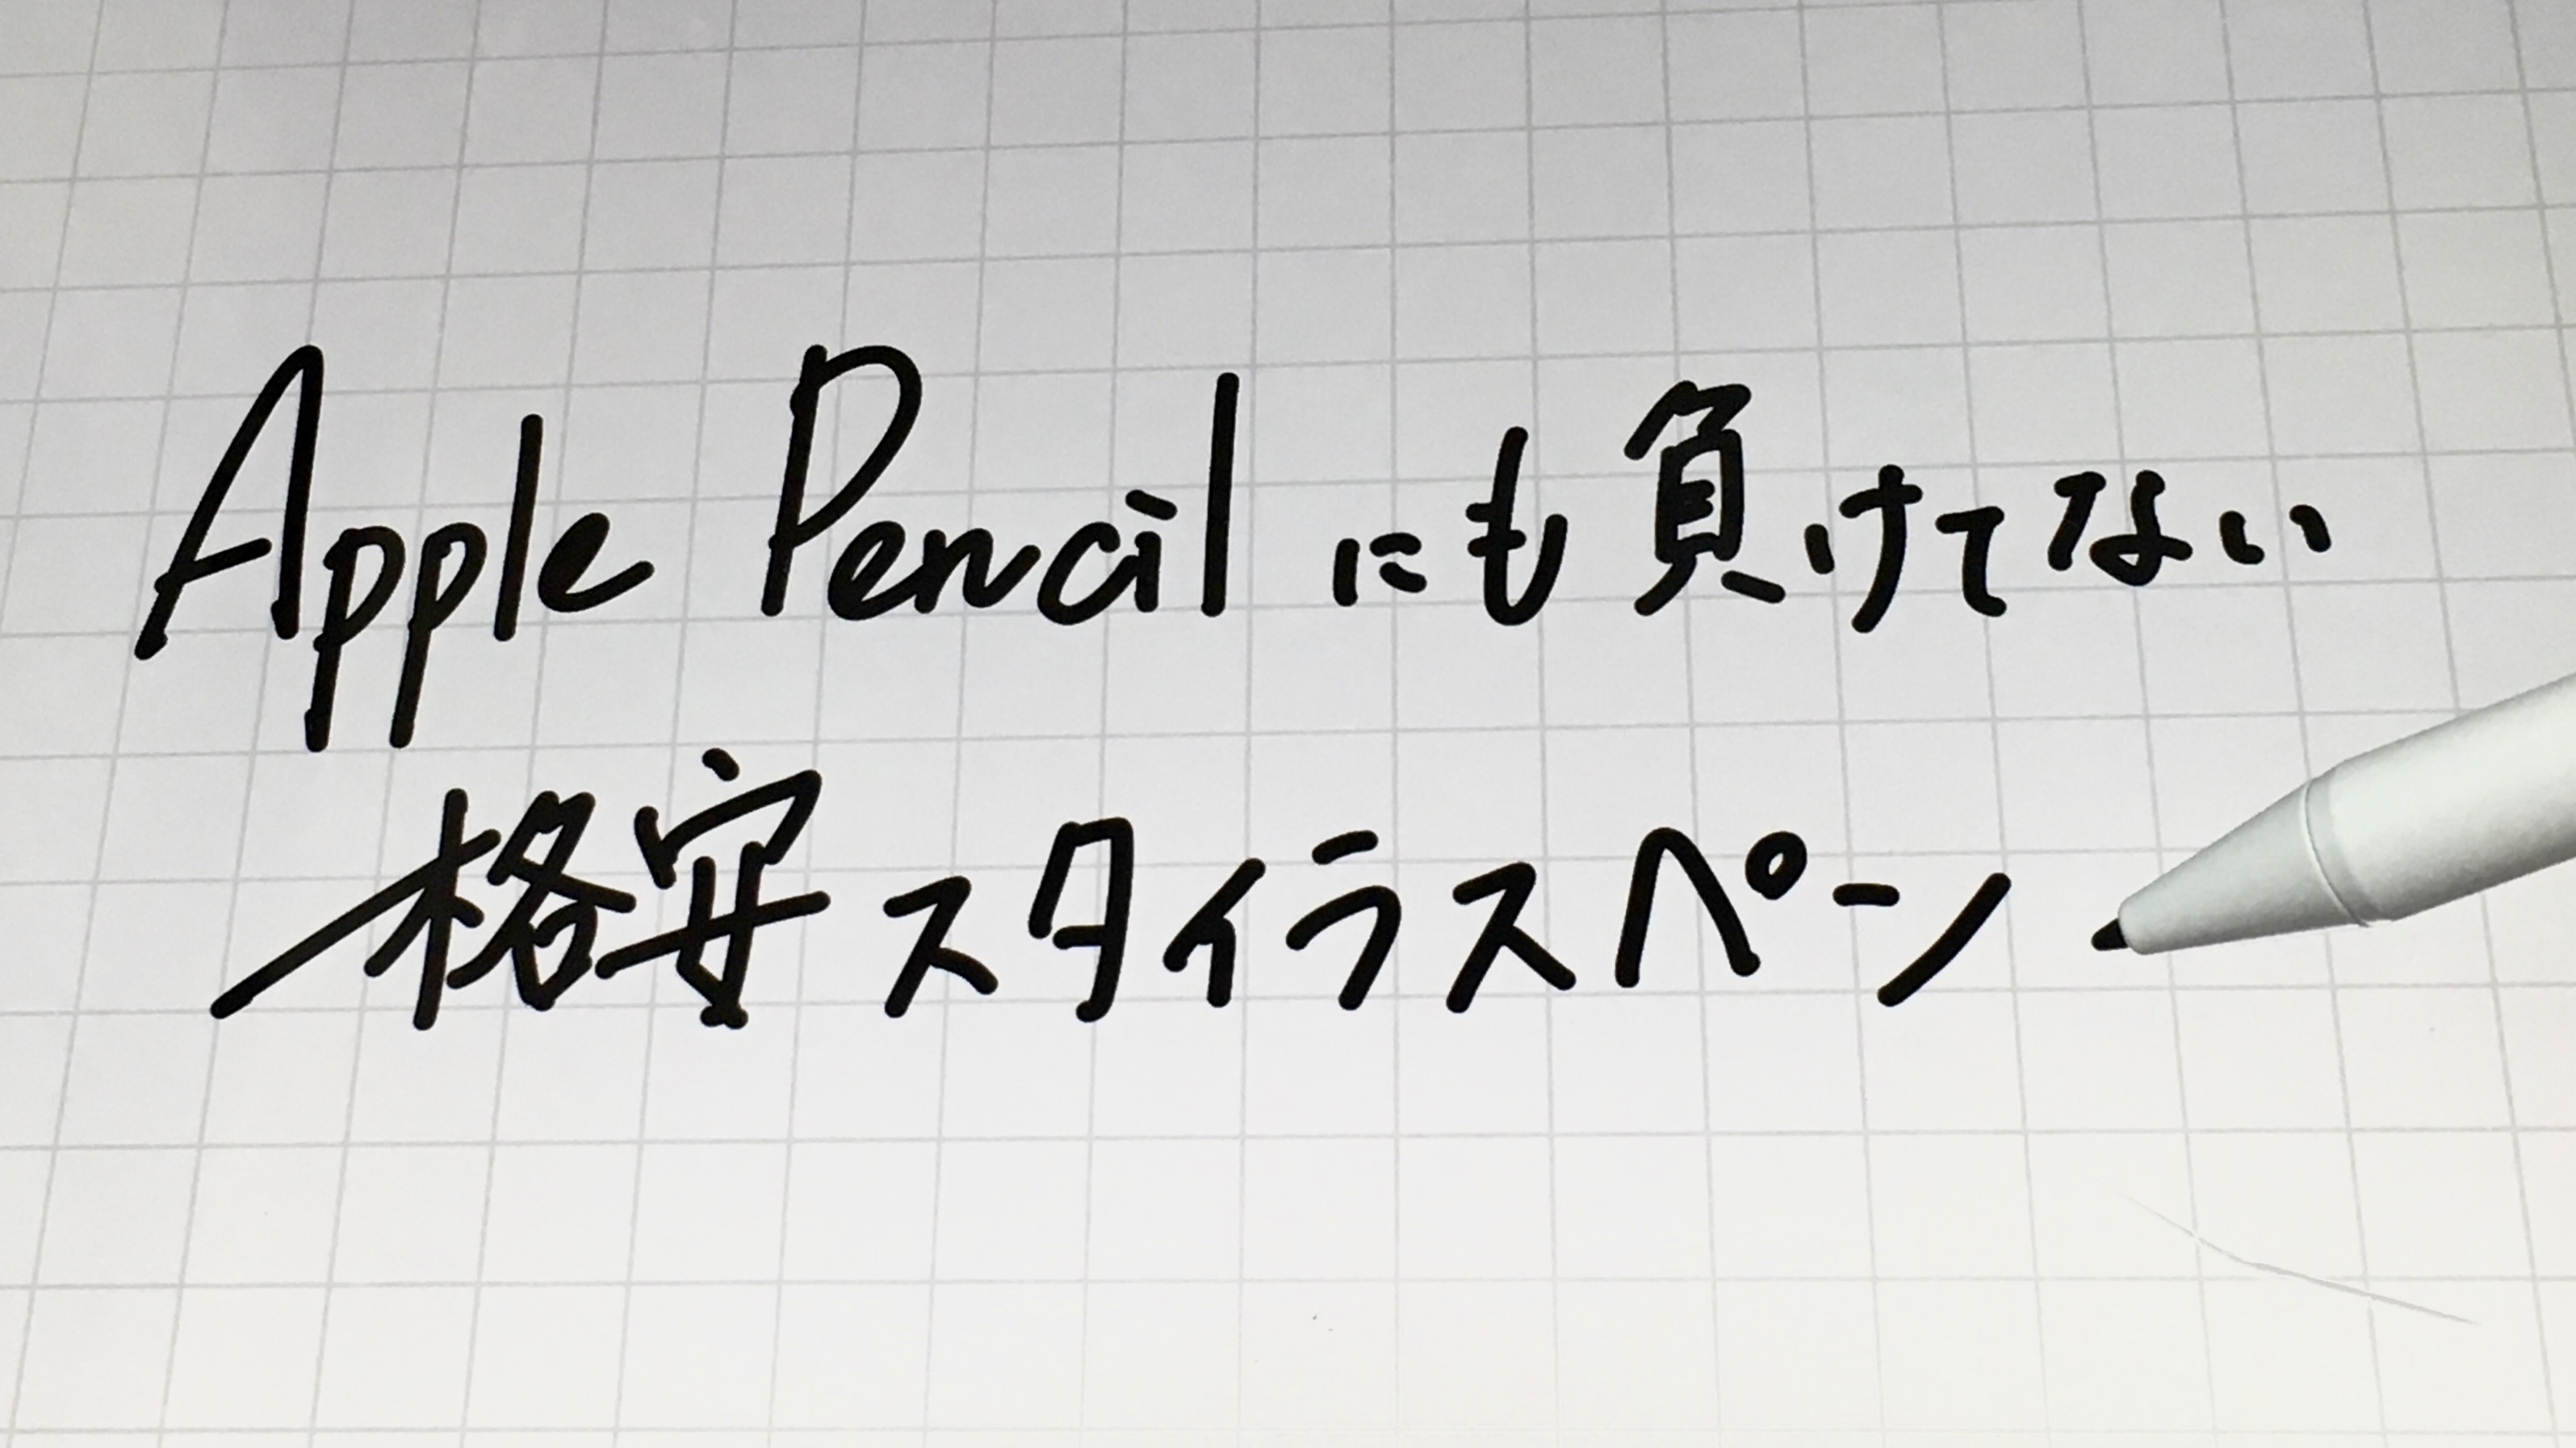 Apple Pencilにも負けてない
格安スタイラスペン